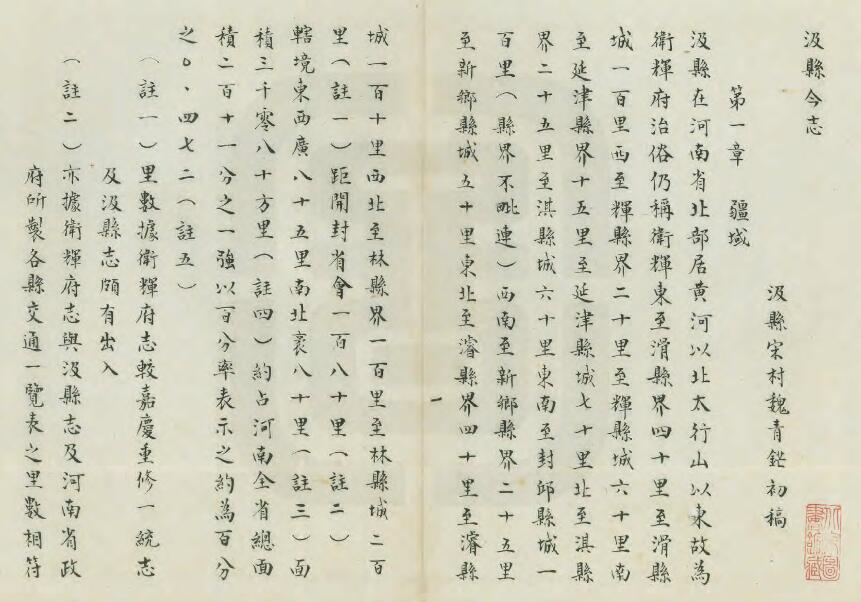 汲縣今志
汲縣宋村魏青鋩初稿
第一章　疆域
汲縣在河南省北部居黄河以北太行山以東故為
衛輝府治俗仍稱衛輝東至滑縣界四十里至滑縣
城一百里西至輝縣界二十里至輝縣城六十里南
至延津縣界十五里至延津縣城七十里北至淇縣
界二十五里至淇縣城六十里東南至封邱縣城一
百里（縣界不毗連）西南至新鄉縣界二十五里
至新鄉縣城五十里東北至濬縣界四十里至濬縣
一
城一百十里西北至林縣界一百里至林縣城二百
里（註一）距開封省會一百八十里（註二）
轄境東西廣八十五里南北袤八十里（註三）面
積三千零八十方里（註四）約占河南全省總面
積二百十一分之一強以百分率表示之約為百分
之〇、四七二（註五）
（註一）里數據衛輝府志較嘉慶重修一統志
及汲縣志頗有出入
（註二）亦據衛輝府志與汲縣志及河南省政
府所製各縣交通一覽表之里數相符